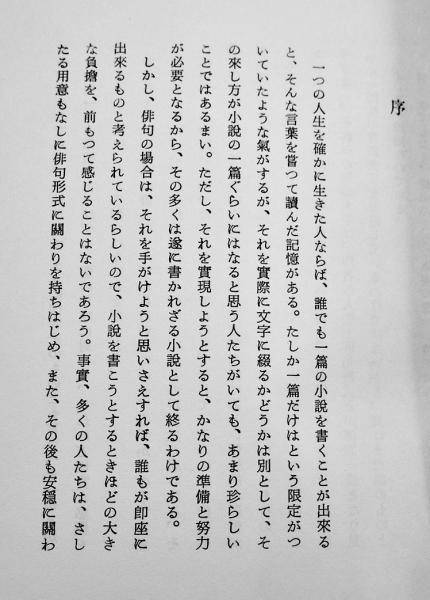 序
一つの人生を確かに生きた人ならば、誰でも一篇の小說を書くことが出來る
と、そんな言葉を嘗つて讀んだ記憶がある。たしか一篇だけはという限定がつ
いていたような氣がするが、それを實際に文字に綴るかどうかは別として、そ
の來し方が小說の一篇ぐらいにはなると思う人たちがいても、あまり珍らしい
ことではあるまい。ただし、それを實現しようとすると、かなりの準備と努力
が必要となるから、その多くは遂に書かれざる小說として終るわけである。
しかし、俳句の場合は、それを手がけようと思いさえすれば、誰もが卽座に
出來るものと考えられているらしいので、小說を書こうとするときほどの大き
な負擔を、前もつて感じることはないであろう。事實、多くの人たちは、さし
たる用意もなしに俳句形式に關わりを持ちはじめ、また、その後も安穩に關わ